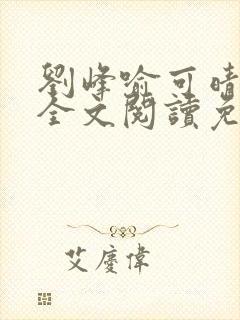 劉峰喻可晴
全文閱讀免
艾慶偉